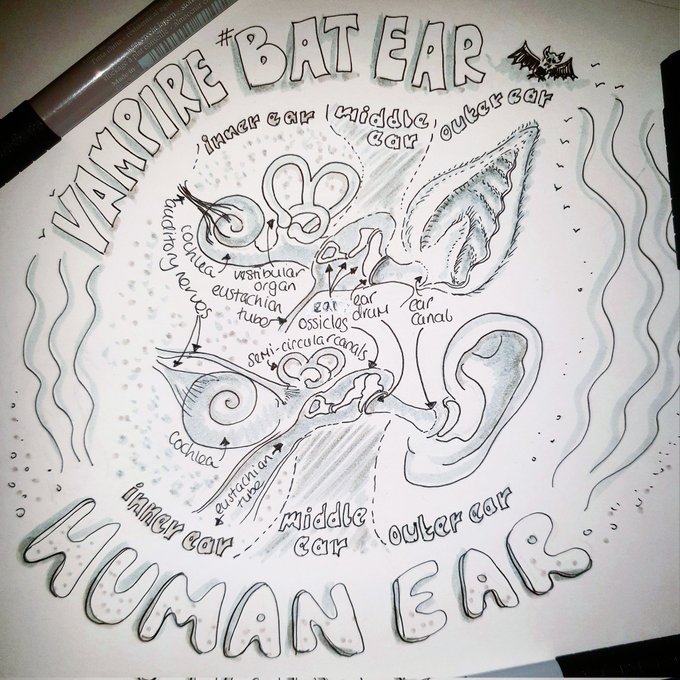 VAMPIRE #BAT EAR
inner ear
middle
ear
outer ear
auditory nerves
cochlea
vestibular
organ
eustachian
tube
ear
ossicles
ear
drum
ear
canal
semi-circular canals
cochlea
eustachian
tube
inner ear
middle
ear
outer ear
HUMAN EAR